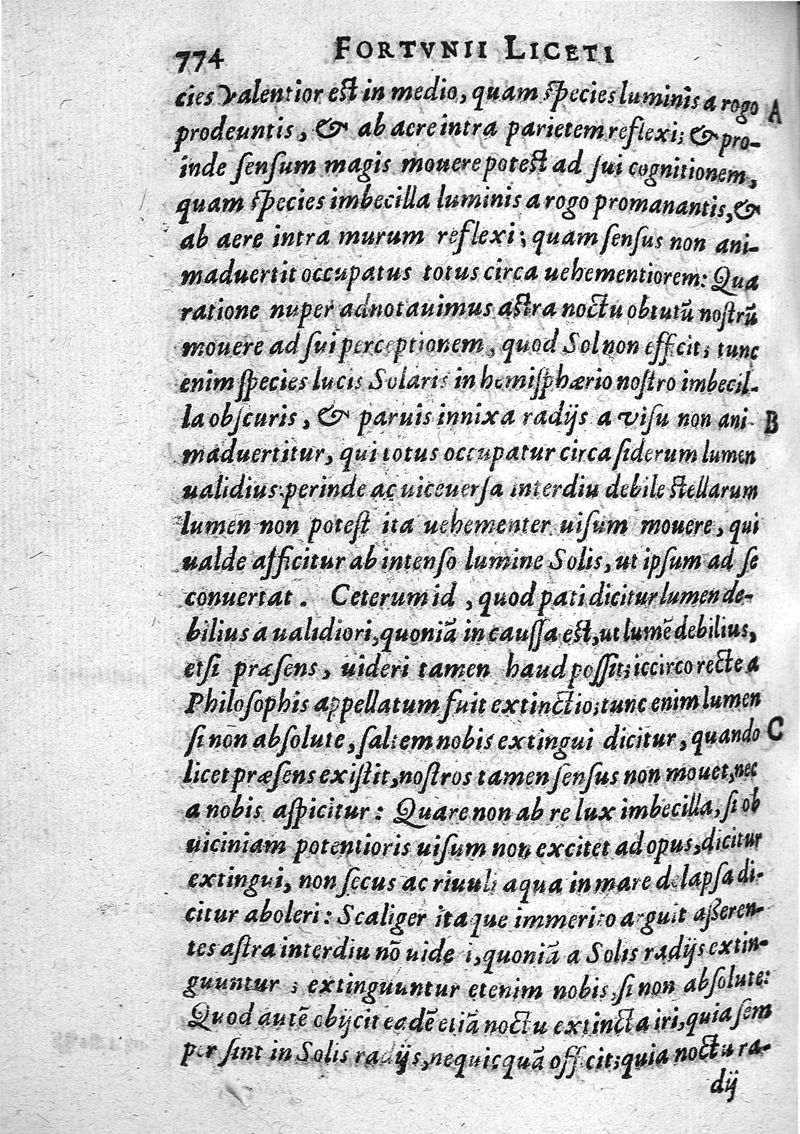 774 FORTVNII LICETI
cies valentior est in medio, quam species luminis a rogo A
prodeuntis, & ab aere intra parietem reflexi; & pro-
inde sensum magis mouere potest ad sui cognitionem,
quam species imbecilla luminis a rogo promanantis, &
ab aere intra murum reflexi; quam sensus non ani-
maduertit occupatus totus circa uehementiorem: Qua
ratione nuper adnotauimus astra noctu obtutũ nostrũ
mouere ad sui perceptionem, quod Sol non efficit; tunc
enim species lucis Solaris in hemisphærio nostro imbecil-
la obscuris, & paruis innixa radijs a visu non ani- B
maduertitur, qui totus occupatur circa siderum lumen
ualidius: perinde ac uiceuersa interdiu debile stellarum
lumen non potest ita uehementer uisum mouere, qui
ualde afficitur ab intenso lumine Solis, ut ipsum ad se
conuertat. Ceterum id, quod pati dicitur lumen de-
bilius a ualidiori, quoniã in caussa est, ut lumẽ debilius,
etsi præsens, uideri tamen haud possit; iccirco recte a
Philosophis appellatum fuit extinctio; tunc enim lumen
si non absolute, saltem nobis extingui dicitur, quando C
licet præsens existit, nostros tamen sensus non mouet, nec
a nobis aspicitur: Quare non ab re lux imbecilla, si ob
uiciniam potentioris uisum non excitet ad opus, dicitur
extingui, non secus ac riuuli aqua in mare delapsa di-
citur aboleri: Scaliger itaque immerito arguit asseren-
tes astra interdiu nõ uideri, quoniã a Solis radijs extin-
guuntur; extinguuntur etenim nobis, si non absolute:
Quod autẽ obijcit eadẽ etiã noctu extincta iri, quia sem
per sint in Solis radijs, nequicquã officit; quia noctu ra-
dij